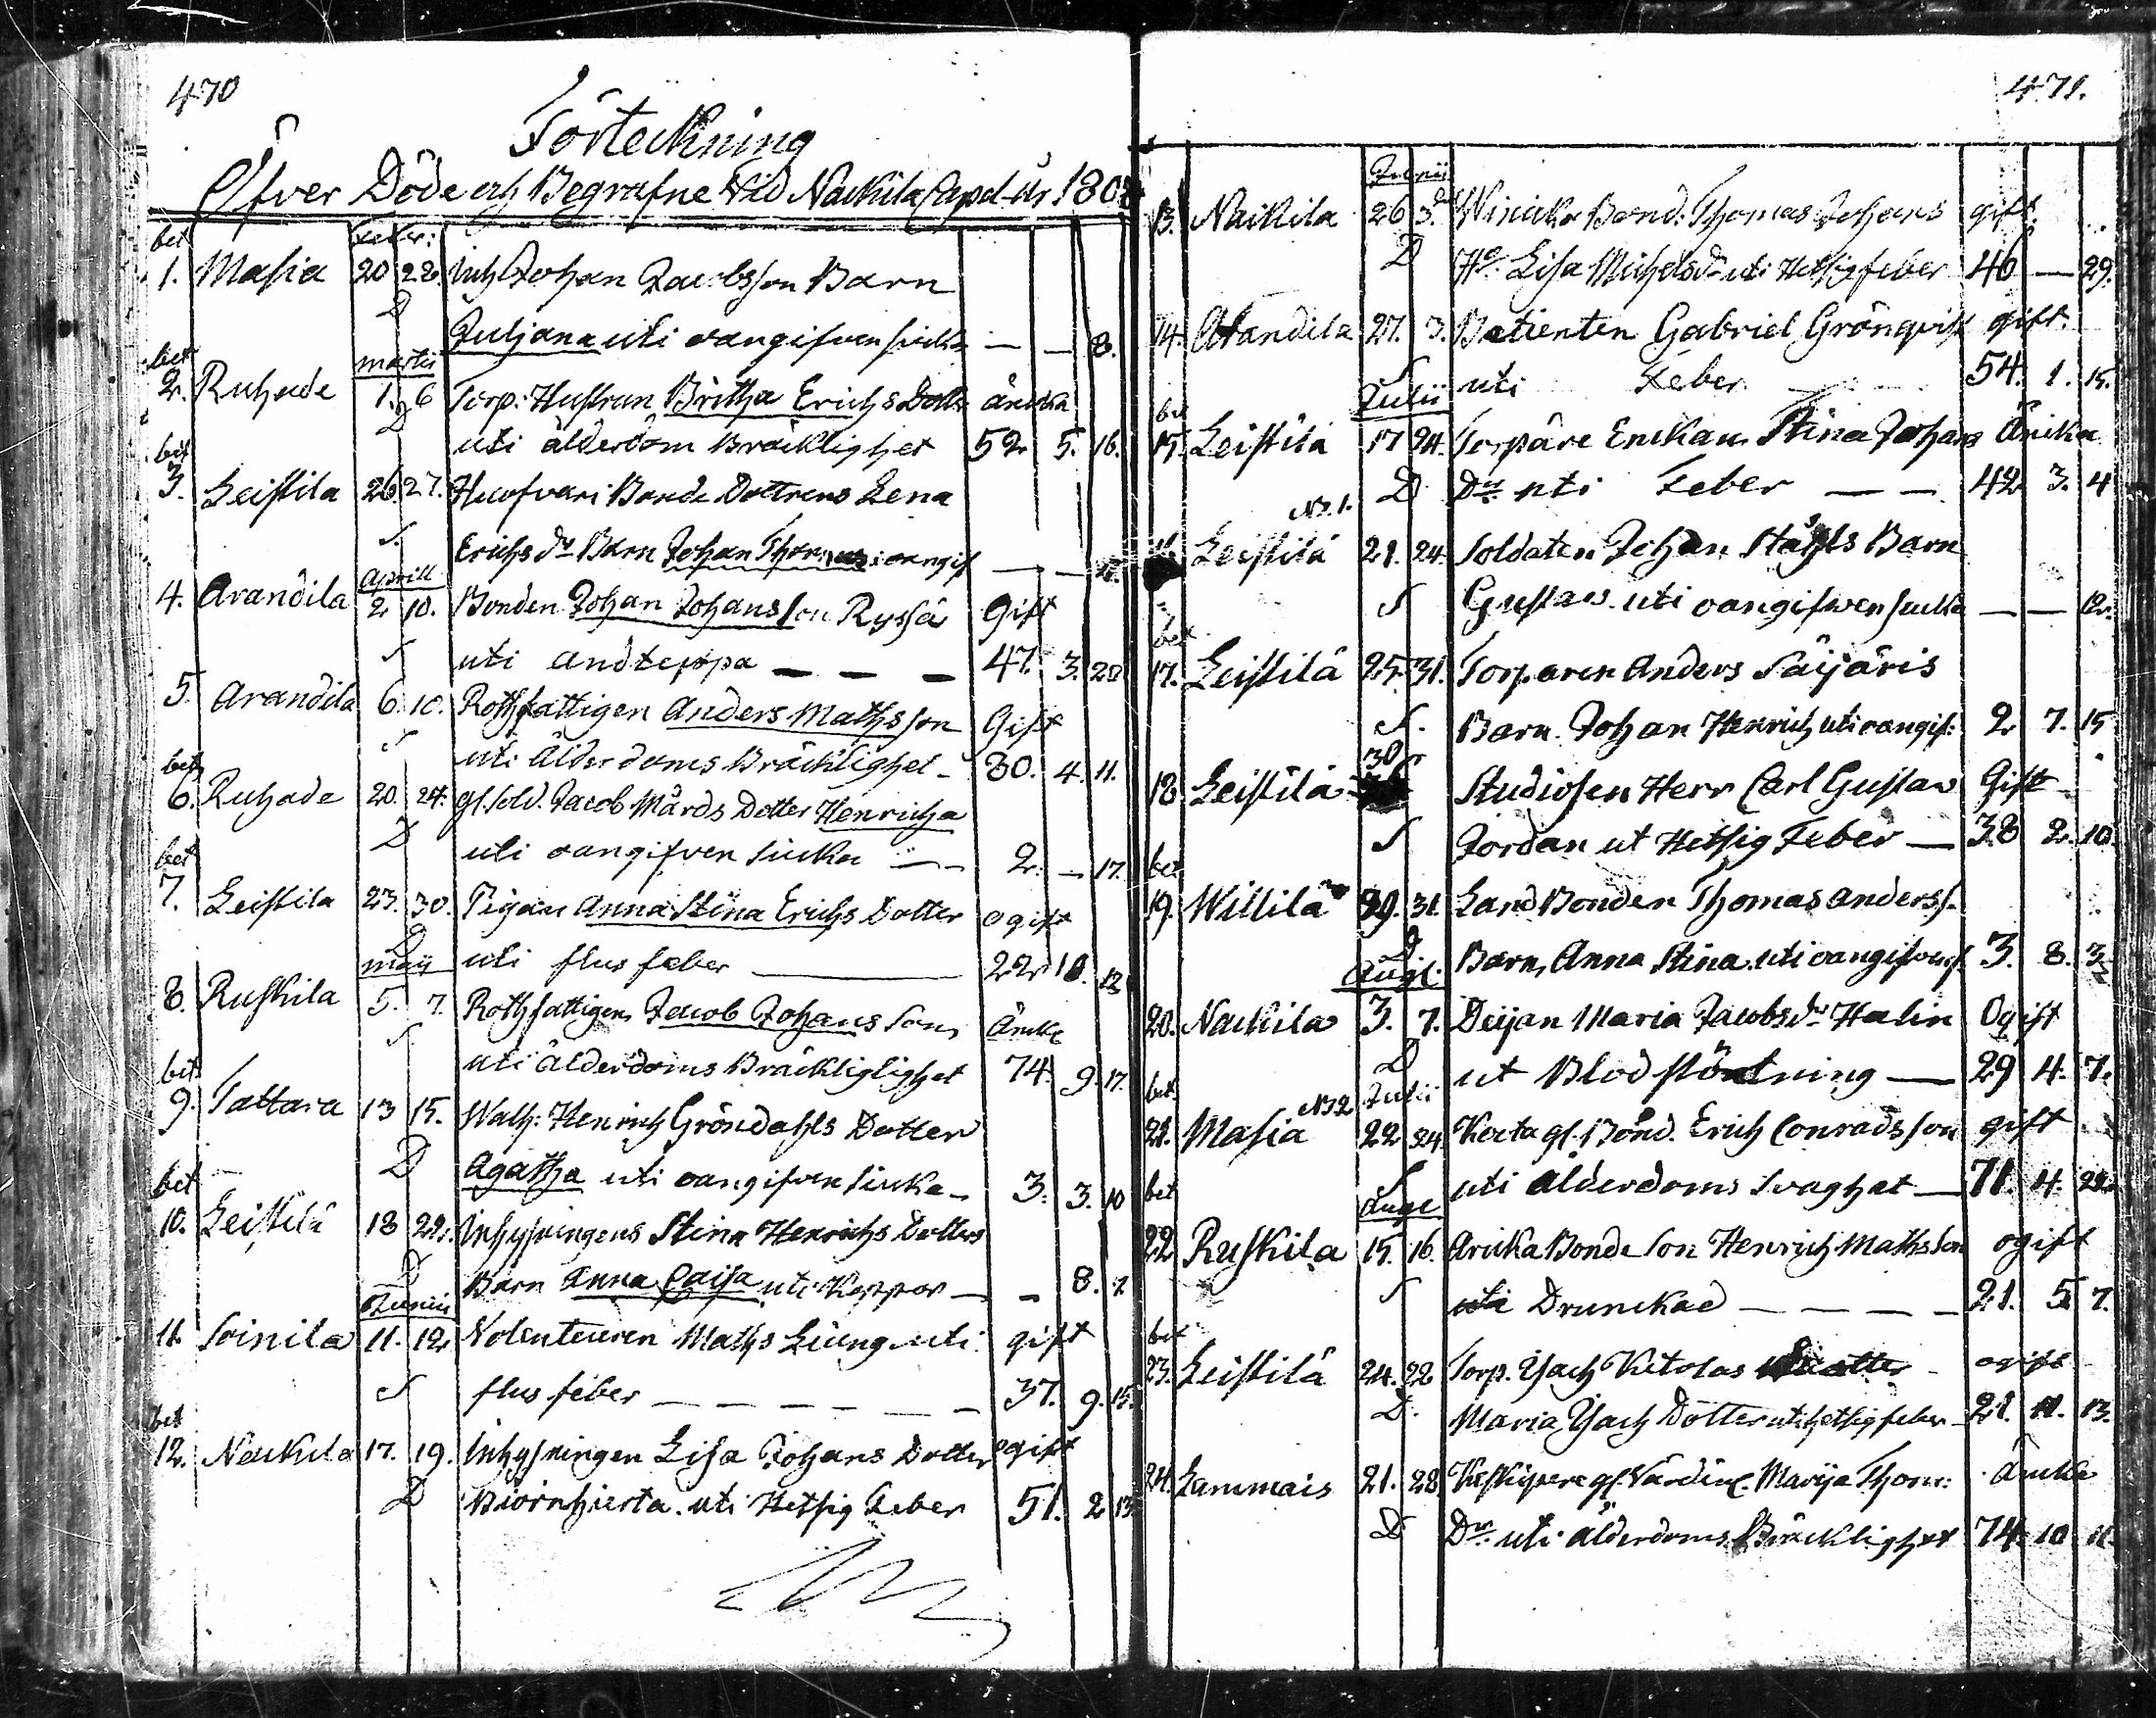 470
Förteckning
Öfver Döde och Begrafne Vid Nackila Capel år 180
bet Febr:
1. Masia 20 28. Inh Johan Jacobsson Barn
D Juljana uti oangifven siucka — — 8.
bet martii
2. Ruhade 1. 6 Torp: Hustrun Britha Erichs Dotter äncka
D uti ålderdom Bräcklighet 52 5. 16.
bet
3. Leistila 26. 27. Bonde Dottrens Lena
S. Erichs dr Barn Johan Thomas oangif — —
Aprill
4. Arandila 2 10. Bonden Johan Johansson Ryssä Gift
S uti andteppa — — — 47. 3. 28
5. Arandila 6. 10. Rothfattigen Anders Mathsson Gift
S uti Ålderdoms Bräcklighet — 80. 4. 11.
bet
6. Ruhade 20. 24. gl. sold. Jacob Mårds Dotter Henricha
D uti oangifven siucka — 2. — 17.
bet
7. Leistila 23. 30. Pigan Anna Stina Erichs Dotter ogift
D uti flus feber — 22 10. 12
maij
8. Ruskila 5. 7. Rothfattigen Jacob Johans Son Äncke
S uti ålderdoms Bräckliglighet 74. 9. 17.
bet
9. Tattara 13 15. Walh: Henrich Gröndahls Dotter
D Agatha uti oangifven siucka — 3. 3. 10
bet
10. Leistilä 18 22. Inhysningens Stina Henrichs Dotters
D Barn Anna Caisa uti Koppor — — 8. 2
Junii
11. Soinila 11. 12 Volenteuren Maths Liung uti gift
S flus feber — — — — — — 37. 9. 15.
bet
12. Nackila 17. 19. Inhysningen Lisa Johans Dotter ogift
D Biörnhierta uti Hetsig Feber 51. 2 13
471.
Junii
13. Nackila 26 3. Winicka Bond. Thomas Johans gift.
D Ho: Lisa Michelsdr uti Hetsig feber 46 — 29.
14. Arandila 27. 3. Patienten Gabriel Grönqvist gift.
S uti Feber 54. 1. 15.
bet Julii
15. Leistilä 17 24. Torpare Enckan Stina Johans Äncka
D Dr. uti Feber — — 42 3. 4
No. 1.
16 Leistilä 21. 24. Soldaten Johan Ståhls Barn
S Gustav uti oangifven siucka — — 12.
bet
17. Leistilä 25. 31. Torparen Anders Säijäris
S. Barn Johan Henrich uti oangif: 2 7. 15
30
18 Leistilä Studiosen Herr Carl Gustav Gift
S Jordan ut Hetsig Feber — 38 2. 10
bet
19. Willilä 29. 31. Land Bonden Thomas Anderss.
D Barn, Anna Stina uti oangifven s. 3. 8. 3
Augt.
20. Nackila 3. 7. Deijan Maria Jacobs dr Halin Ogift
D ut Blodstörtning — 29 4. 7.
bet No 2 Julii
21. Masia 22 24 Kerta gl. Bond. Erich Conradsson gift
S uti Ålderdoms Svaghet — 71. 4. 22
bet Augt
22 Ruskila 15. 16. Aricka Bonde Son Henrich Mathsson ogift
S uti Drunckad — — — — 21. 5. 7.
bet
23. Leistilä 24. 28 Torp. Isach Ketolas Dotter — ogift
D. Maria Isach Dotter uti hetsig feber — 21. 11. 13.
24. Lammais 21. 28. gl. Värdin. Marija Thom: Äncka
D Dr. uti ålderdoms Bräcklighet 74. 10 11.